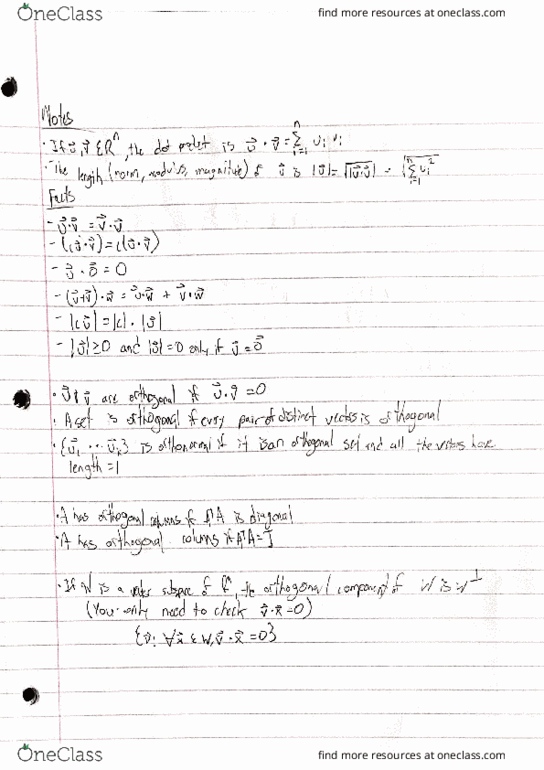 OneClass
find more resources at oneclass.com
Notes
· If ū, v̄ ∈ ℝⁿ, the dot product is ū · v̄ = Σⁿᵢ₌₁ uᵢ vᵢ
· The length (norm, modulus, magnitude) of ū is |ū| = √(ū·ū) = √(Σⁿᵢ₌₁ uᵢ²)
Facts
- ū·v̄ = v̄·ū
- (cū·v̄) = c(ū·v̄)
- ū · ō = 0
- (ū+v̄)·w̄ = ū·w̄ + v̄·w̄
- |cū| = |c| · |ū|
- |ū| ≥ 0 and |ū| = 0 only if ū = ō
· ū & v̄ are orthogonal if ū · v̄ = 0
· A set is orthogonal if every pair of distinct vectors is orthogonal
· {ū₁ ... ūₖ} is orthonormal if it is an orthogonal set and all the vectors have
length = 1
· A has orthogonal columns if AᵀA is diagonal
· A has orthogonal columns if AᵀA = I
· If W is a vector subspace of ℝⁿ, the orthogonal component of W is W⊥
(You only need to check v̄ · x̄ = 0)
{v̄: ∀x̄ ∈ W, v̄ · x̄ = 0}
OneClass
find more resources at oneclass.com